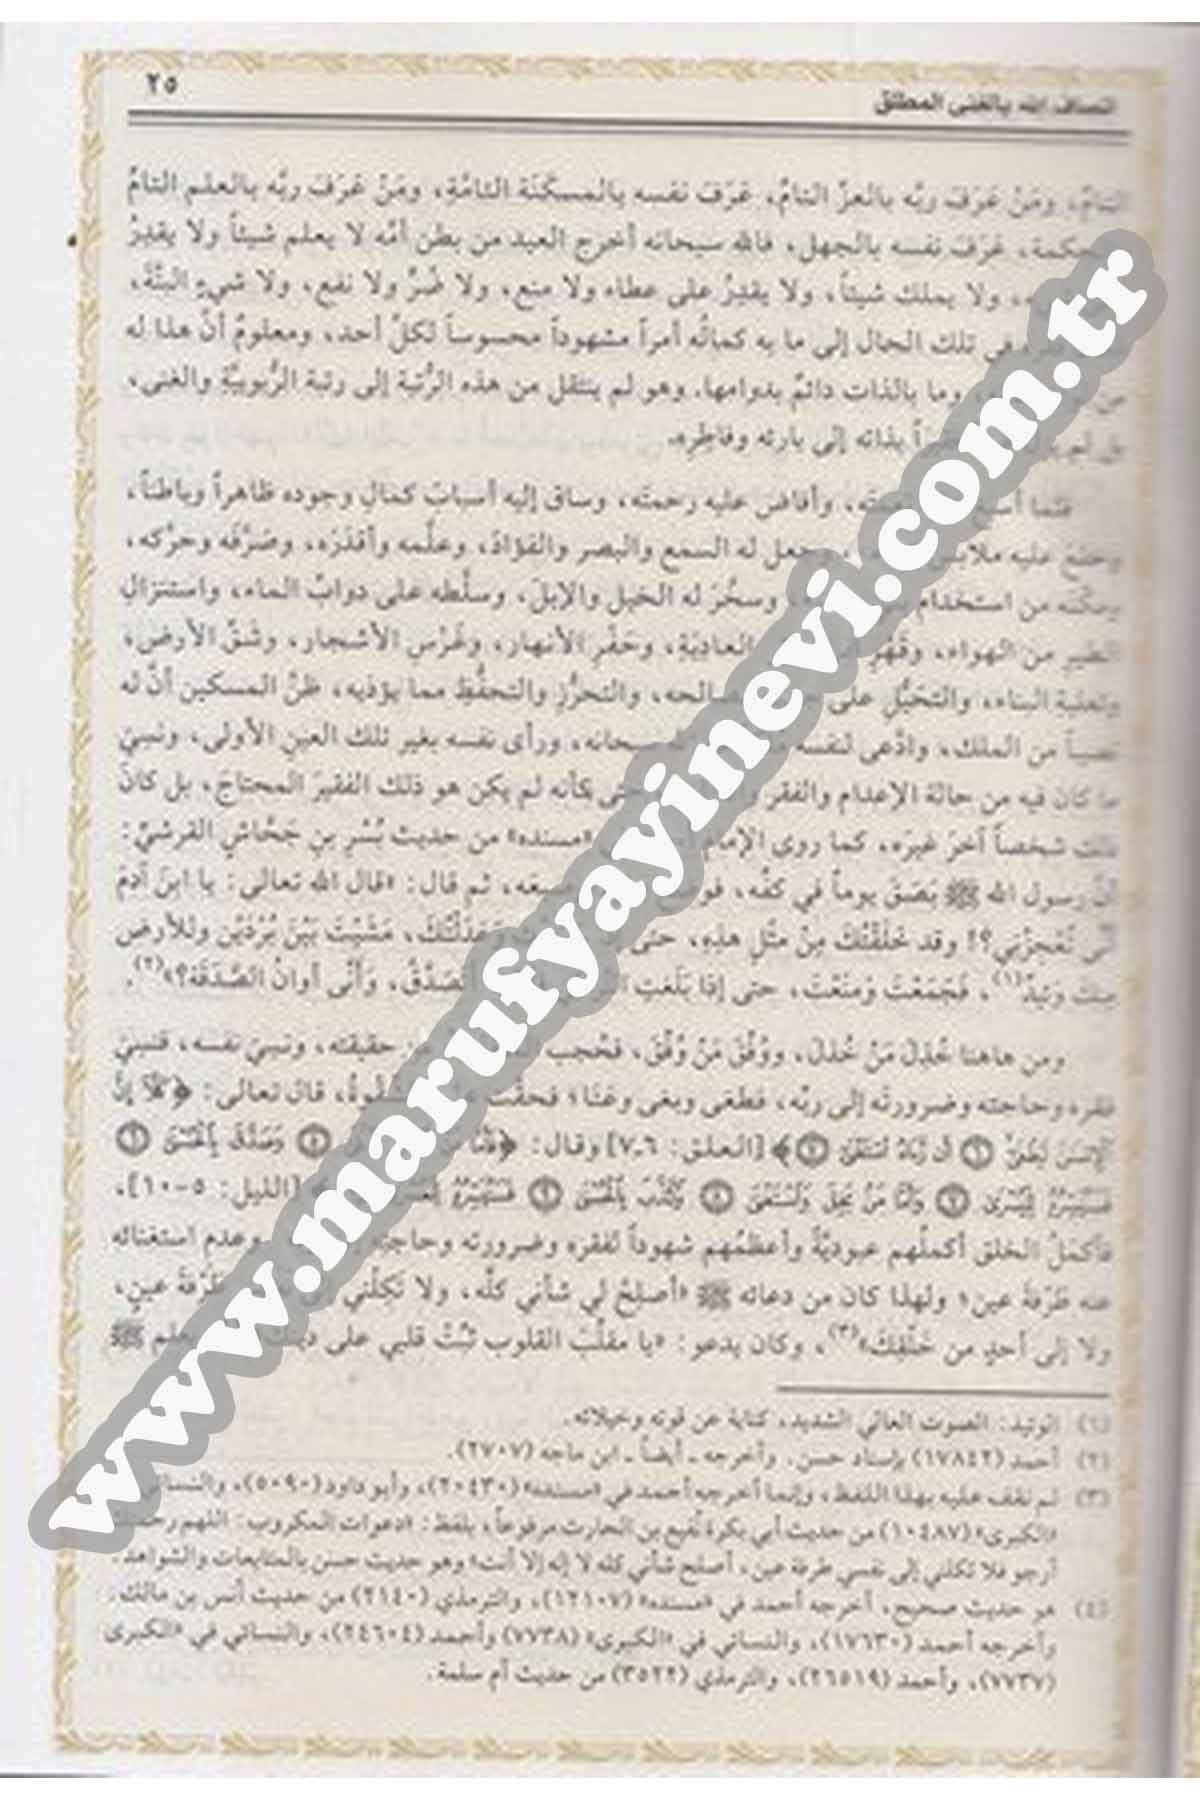 اتصاف الله بالغنى المطلق
٢٥
التامِّ، ومَنْ عَرَفَ ربَّه بالعزِّ التامِّ، عَرَفَ نفسه بالمسكَنَة التامَّةِ، ومَنْ عَرَفَ ربَّه بالعلم التامِّ
عَرَفَ نفسه بالجهل، فالله سبحانه أخرج العبد من بطن أمِّه لا يعلم شيئاً ولا يقدِرُ
ولا يملك شيئاً، ولا يقدِرُ على عطاء ولا منع، ولا ضُرٍّ ولا نفع، ولا شيءٍ البتَّةَ،
في تلك الحال إلى ما به كمالُه أمراً مشهوداً محسوساً لكلِّ أحد، ومعلومٌ أنَّ هذا له
من وما بالذات دائمٌ بدوامها. وهو لم ينتقل من هذه الرُّتبة إلى رتبة الرُّبوبيَّةِ والغنى،
بل لم بذاته إلى بارئه وفاطِرِه.
فلما نعمتَه، وأفاض عليه رحمتَه، وساق إليه أسبابَ كمالِ وجوده ظاهراً وباطناً،
وخلعَ عليه ملابسَ وجعل له السمع والبصر والفؤادَ، وعلَّمه وأقدَرَه، وصَرَّفَه وحرَّكه،
ومكَّنَه من استخدام وسخَّرَ له الخيل والإبلَ، وسلَّطه على دوابِّ الماء، واستنزالِ
الطير من الهواء، وقَهْرِ العاديَةِ، وحَفْرِ الأنهار، وغَرْسِ الأشجار، وشَقِّ الأرض،
وتعليةِ البناء، والتحيُّلِ على مصالحه، والتحرُّزِ والتحفُّظِ مما يؤذيه، ظنَّ المسكين أنَّ له
نصيباً من الملك، وادَّعى لنفسه سبحانه، ورأى نفسه بغير تلك العينِ الأولى، ونسيَ
ما كان فيه من حالة الإعدام والفقر حتى كأنه لم يكن هو ذلك الفقيرَ المحتاجَ، بل كانَ
ذلك شخصاً آخرَ غيرَه، كما روى الإمام «مسنده» من حديث بُسْرِ بنِ جَحَّاشٍ القرشيِّ:
أنَّ رسول الله ﷺ بَصَقَ يوماً في كفِّه، ثم قال: «قال الله تعالى: يا ابنَ آدمَ
أنَّى تُعْجِزُني؟! وقد خَلَقْتُكَ مِنْ مِثْلِ هذِه، حتى وَعَدَلْتُكَ، مَشَيْتَ بَيْنَ بُرْدَيْنِ وللأرضِ
منك وَئِيدٌ(١)، فَجَمَعْتَ وَمَنَعْتَ، حتى إذا بَلَغَتِ أتَصَدَّقُ، وَأَنَّى أوانُ الصَّدَقَة؟»(٢).
ومن هاهنا خُذِلَ مَنْ خُذل، ووُفِّقَ مَنْ وُفِّقَ، فحُجب عن حقيقته، ونسيَ نفسه، فنسيَ
فقره وحاجته وضرورتَه إلى ربِّه، فطغى وبغى وعَتَا؛ فحقَّت الشِّقْوةُ، قال تعالى: ﴿كَلَّا إِنَّ
الْإِنسَانَ لَيَطْغَىٰ ٦ أَن رَّآهُ اسْتَغْنَىٰ ٧﴾ [العلق: ٦ـ٧] وقال: ﴿فَأَمَّا مَنْ ٥ وَصَدَّقَ بِالْحُسْنَىٰ ٦
فَسَنُيَسِّرُهُ لِلْيُسْرَىٰ ٧ وَأَمَّا مَنْ بَخِلَ وَاسْتَغْنَىٰ ٨ وَكَذَّبَ بِالْحُسْنَىٰ ٩ فَسَنُيَسِّرُهُ [الليل: ٥-١٠]،
فأكملُ الخلق أكملُهم عبوديَّةً وأعظمُهم شهوداً لفقره وضرورته وحاجته وعدم استغنائه
عنه طَرْفةَ عين؛ ولهذا كان من دعائه ﷺ «أصلِحْ لي شأني كلَّه، ولا تَكِلْني طَرْفةَ عينٍ،
ولا إلى أحدٍ من خَلْقِكَ»(٣)، وكان يدعو: «يا مقلِّبَ القلوب ثبِّتْ قلبي على ﷺ
(١) الوئيد: الصوت العالي الشديد، كناية عن قوته وخيلائه.
(٢) أحمد (١٧٨٤٢) بإسناد حسن. وأخرجه ـ أيضاً ـ ابن ماجه (٢٧٠٧).
(٣) لم نقف عليه بهذا اللفظ، وإنما أخرجه أحمد في «مسنده» (٢٠٤٣٠)، وأبو داود (٥٠٩٠)، والنسائي
«الكبرى» (١٠٤٨٧) من حديث أبي بكرة نُفيع بن الحارث مرفوعاً، بلفظ: «دعوات المكروب: اللهم رحمتك
أرجو فلا تكلني إلى نفسي طرفة عين، أصلح شأني كله لا إله إلا أنت» وهو حديث حسن بالمتابعات والشواهد.
(٤) هو حديث صحيح، أخرجه أحمد في «مسنده» (١٢١٠٧)، والترمذي (٢١٤٠) من حديث أنس بن مالك.
وأخرجه أحمد (١٧٦٣٠)، والنسائي في «الكبرى» (٧٧٣٨) وأحمد (٢٤٦٠٤)، والنسائي في «الكبرى
(٧٧٣٧)، وأحمد (٢٦٥١٩)، والترمذي (٣٥٢٢) من حديث أم سلمة.
www.marufyayinevi.com.tr